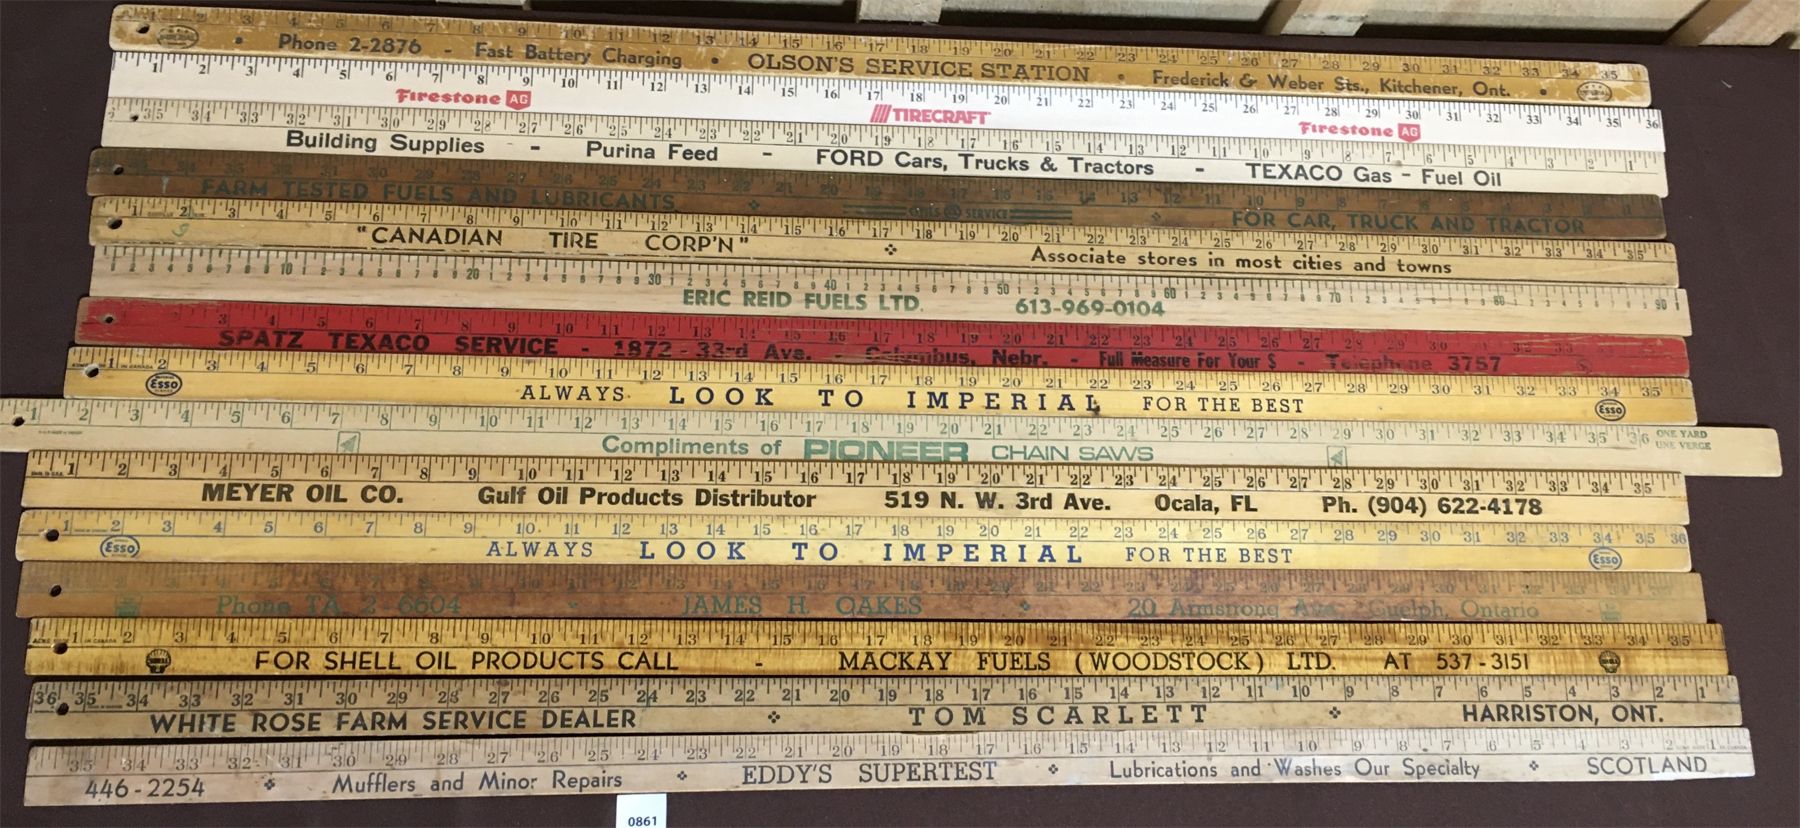 Phone 2-2876 - Fast Battery Charging • OLSON'S SERVICE STATION • Frederick & Weber Sts., Kitchener, Ont. •
1 2 3 4 5 6 7 8 9 10 11 12 13 14 15 16 17 18 19 20 21 22 23 24 25 26 27 28 29 30 31 32 33 34 35 36
Firestone AG TIRECRAFT Firestone AG
Building Supplies - Purina Feed - FORD Cars, Trucks & Tractors - TEXACO Gas - Fuel Oil
FARM TESTED FUELS AND LUBRICANTS CITIES SERVICE FOR CAR, TRUCK AND TRACTOR
"CANADIAN TIRE CORP'N" Associate stores in most cities and towns
ERIC REID FUELS LTD. 613-969-0104
SPATZ TEXACO SERVICE - 1872 - 33rd Ave. - Columbus, Nebr. - Full Measure For Your $ - Telephone 3757
Esso ALWAYS LOOK TO IMPERIAL FOR THE BEST Esso
ONE YARD
UNE VERGE
Compliments of PIONEER CHAIN SAWS
MEYER OIL CO. Gulf Oil Products Distributor 519 N. W. 3rd Ave. Ocala, FL Ph. (904) 622-4178
Esso ALWAYS LOOK TO IMPERIAL FOR THE BEST Esso
Phone TA 2-6604 JAMES H. OAKES 20 Armstrong Ave. Guelph, Ontario
FOR SHELL OIL PRODUCTS CALL - MACKAY FUELS (WOODSTOCK) LTD. AT 537-3151
WHITE ROSE FARM SERVICE DEALER TOM SCARLETT HARRISTON, ONT.
446-2254 Mufflers and Minor Repairs EDDY'S SUPERTEST Lubrications and Washes Our Specialty SCOTLAND
0861